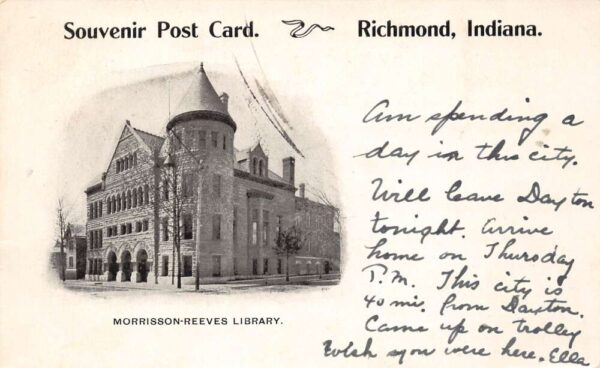 Souvenir Post Card. Richmond, Indiana.
MORRISSON-REEVES LIBRARY.
Am spending a
day in this city.
Will leave Dayton
tonight. Arrive
home on Thursday
P.M. This city is
40 mi. from Dayton.
Came up on trolley
Wish you were here. Ella